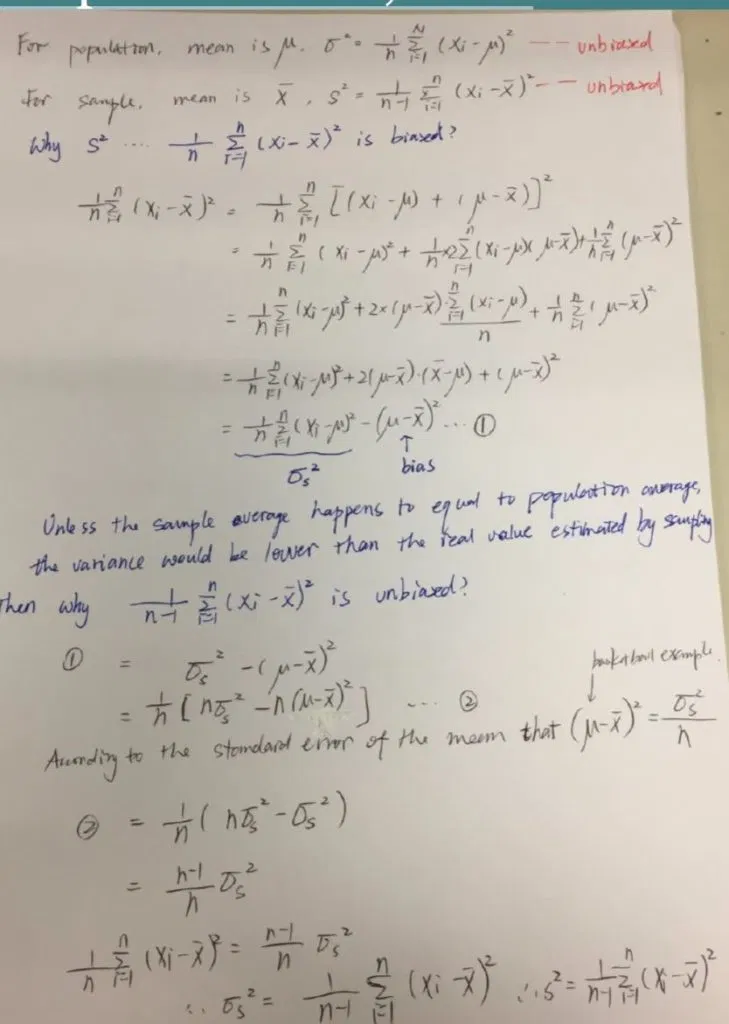 For population, mean is μ. σ² = 1/n Σ_{i=1}^{N} (xi - μ)² -- unbiased
For sample, mean is x̄, s² = 1/(n-1) Σ_{i=1}^{n} (xi - x̄)² -- unbiased
Why s² .... 1/n Σ_{i=1}^{n} (xi - x̄)² is biased?
1/n Σ_{i=1}^{n} (xi - x̄)² = 1/n Σ_{i=1}^{n} [(xi - μ) + (μ - x̄)]²
= 1/n Σ_{i=1}^{n} (xi - μ)² + 1/n × 2 Σ_{i=1}^{n} (xi - μ)(μ - x̄) + 1/n Σ_{i=1}^{n} (μ - x̄)²
= 1/n Σ_{i=1}^{n} (xi - μ)² + 2 × (μ - x̄) · Σ_{i=1}^{n} (xi - μ) / n + 1/n Σ_{i=1}^{n} (μ - x̄)²
= 1/n Σ_{i=1}^{n} (xi - μ)² + 2(μ - x̄) · (x̄ - μ) + (μ - x̄)²
= 1/n Σ_{i=1}^{n} (xi - μ)² - (μ - x̄)² ... ①
σs² ↑
bias
Unless the sample average happens to equal to population average,
the variance would be lower than the real value estimated by sampling
Then why 1/(n-1) Σ_{i=1}^{n} (xi - x̄)² is unbiased?
① = σs² - (μ - x̄)²
example.
= 1/n [nσs² - n(μ - x̄)²] .... ②
According to the standard error of the mean that (μ - x̄)² = σs²/n
② = 1/n (nσs² - σs²)
= (n-1)/n σs²
1/n Σ_{i=1}^{n} (xi - x̄)² = (n-1)/n σs²
∴ σs² = 1/(n-1) Σ_{i=1}^{n} (xi - x̄)² ∴ s² = 1/(n-1) Σ_{i=1}^{n} (xi - x̄)²